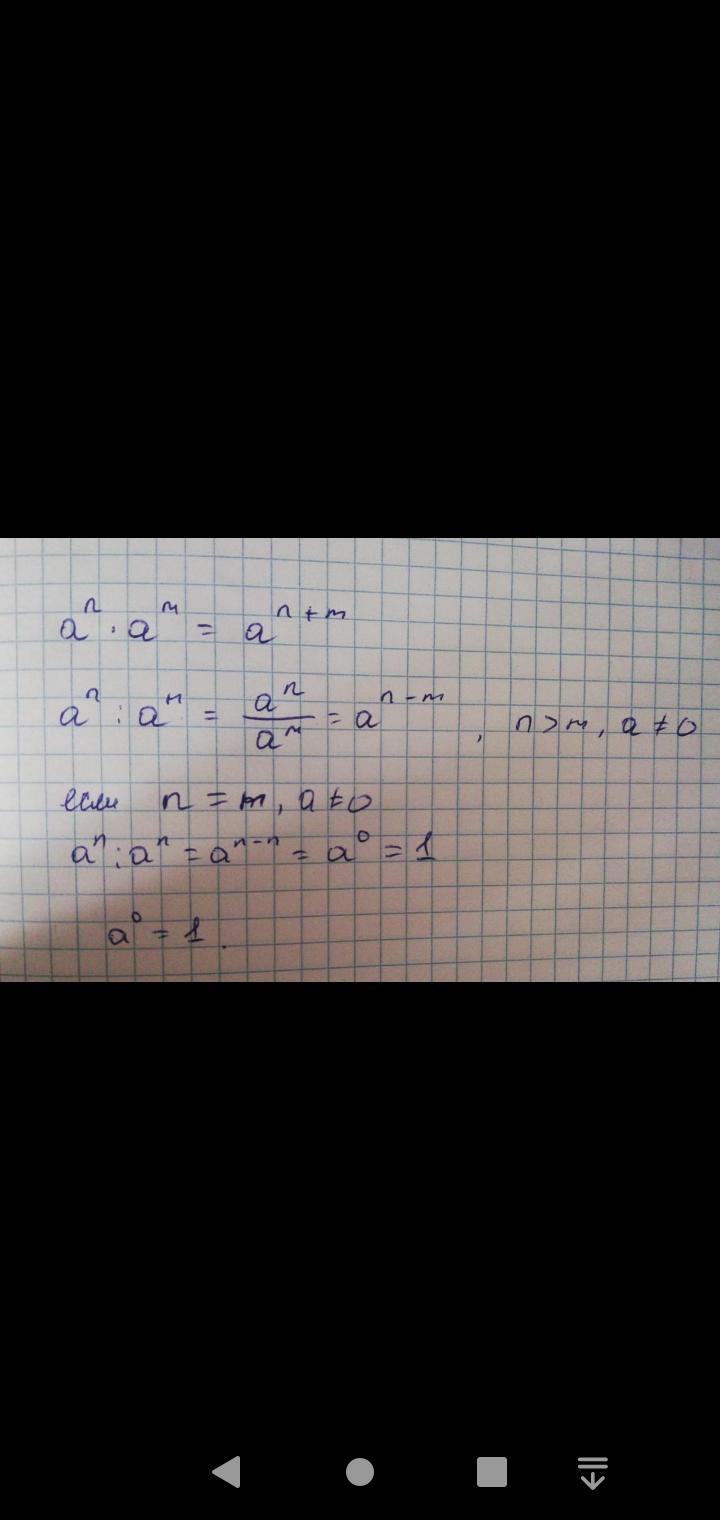 aⁿ · aᵐ = aⁿ⁺ᵐ
aⁿ : aᵐ = aⁿ/aᵐ = aⁿ⁻ᵐ , n > m, a ≠ 0
если n = m, a ≠ 0
aⁿ : aⁿ = aⁿ⁻ⁿ = a⁰ = 1
a⁰ = 1.